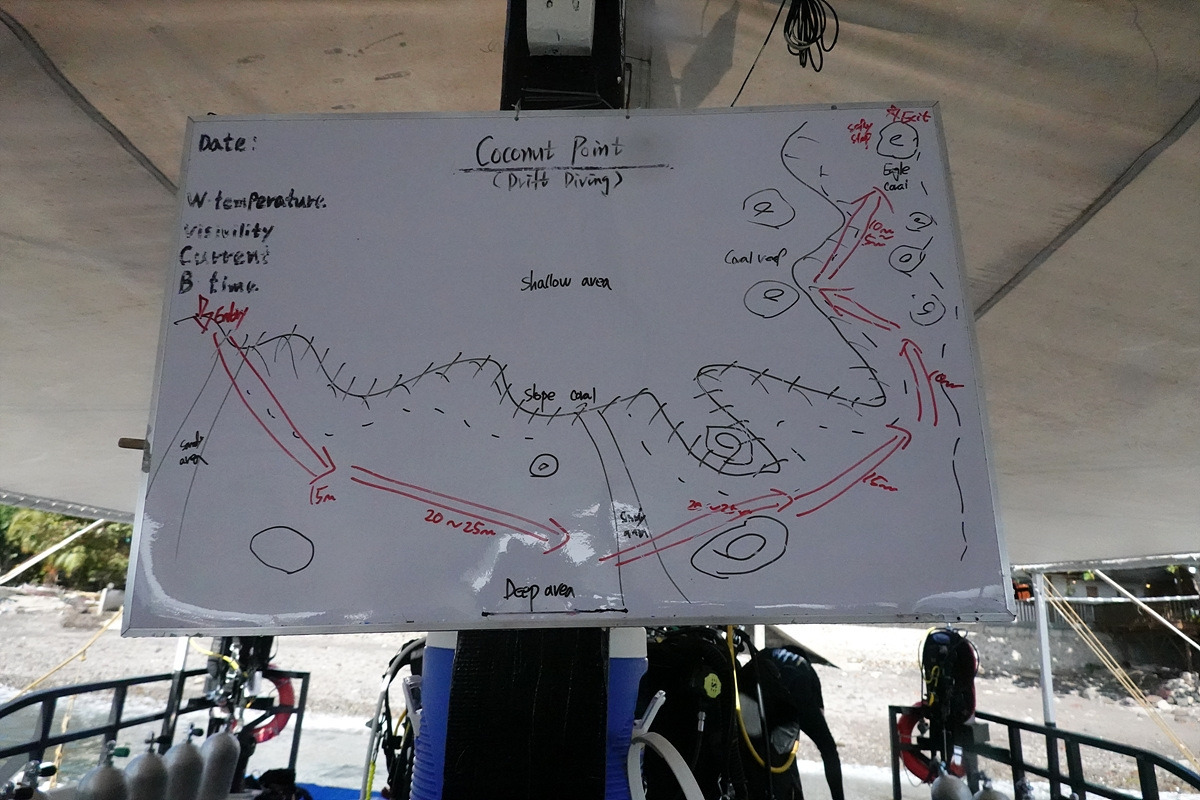 Date:
Coconut Point
(Drift Diving)
W temperature.
Visivility
Current
B time.
Entry
Exit
safety stop
Eagle
coral
10m~
5m
Coral reef
shallow area
slope coral
sandy
area
15m
20~25m
20~25m
15m
10m
Sandy
area
Deep area